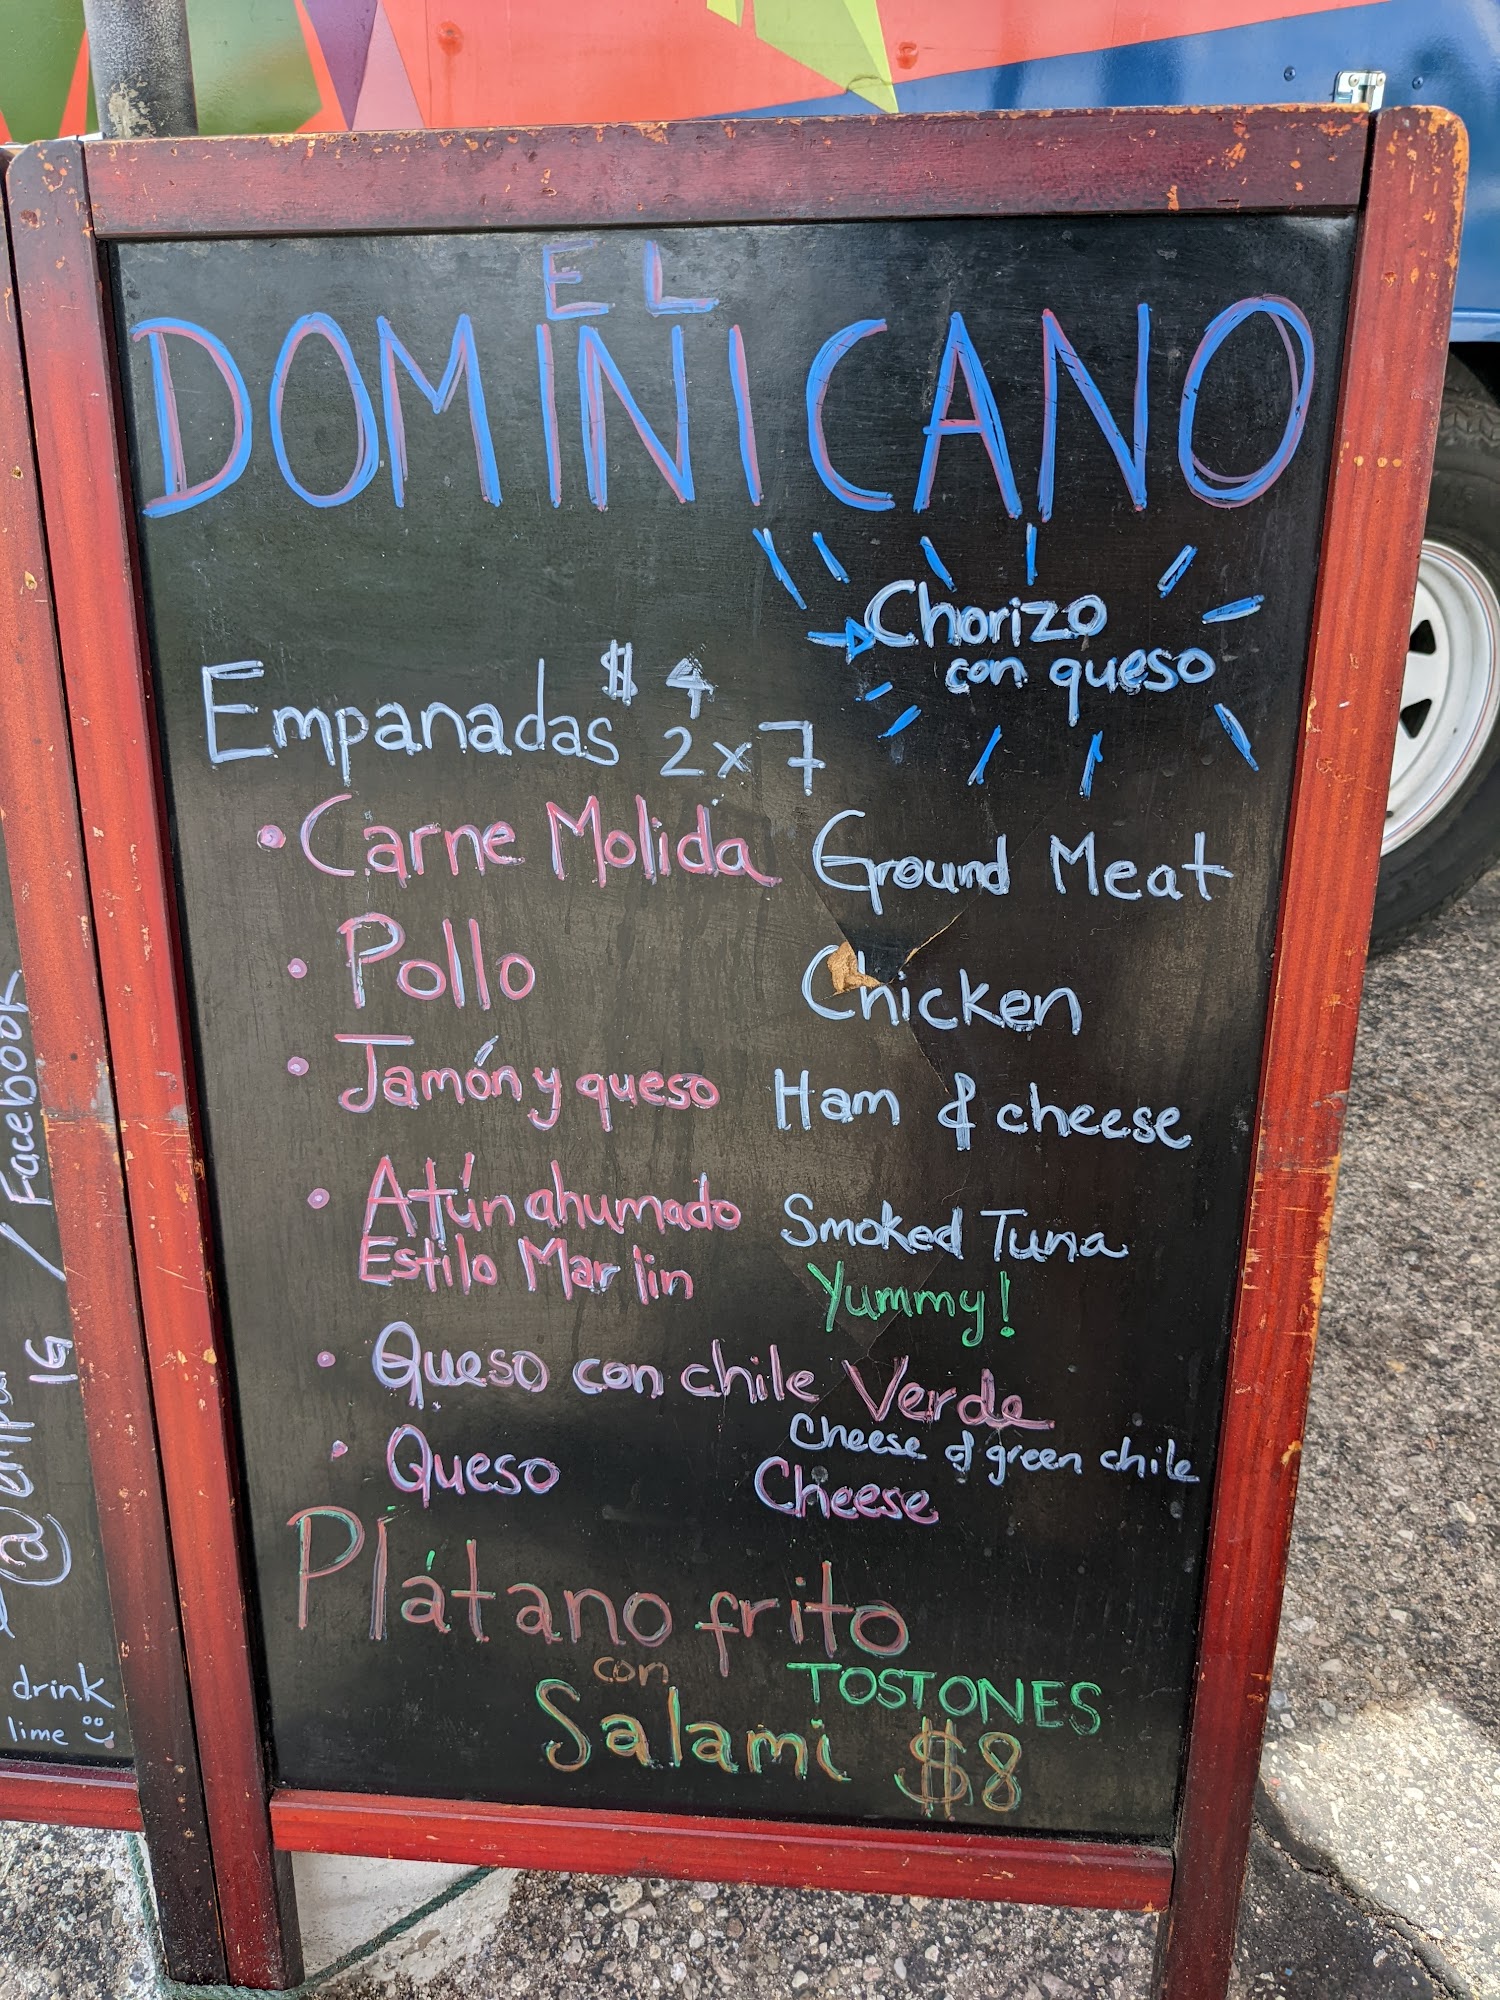 EL
DOMINICANO
Chorizo
con queso
Empanadas $4
2x7
• Carne Molida Ground Meat
• Pollo Chicken
• Jamón y queso Ham & cheese
• Atún ahumado Smoked Tuna
Estilo Marlin Yummy!
• Queso con chile Verde
Cheese & green chile
• Queso Cheese
Plátano frito
con TOSTONES
Salami $8
/ Facebook
IG
drink
lime